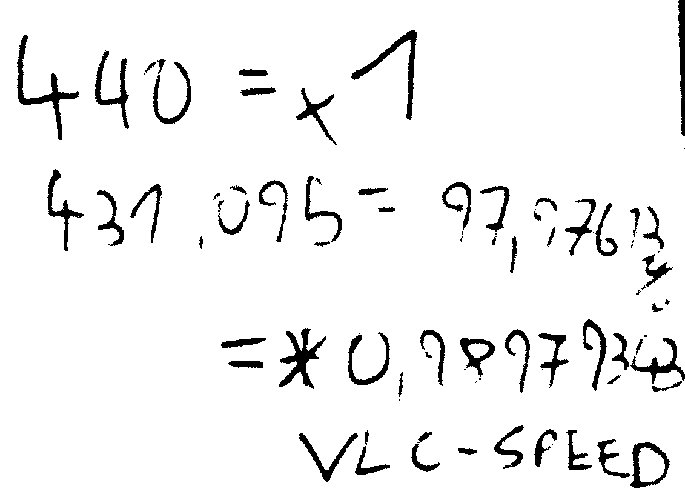 440 = x1
431,095 = 97,97613%
= * 0,98979343
VLC-SPEED